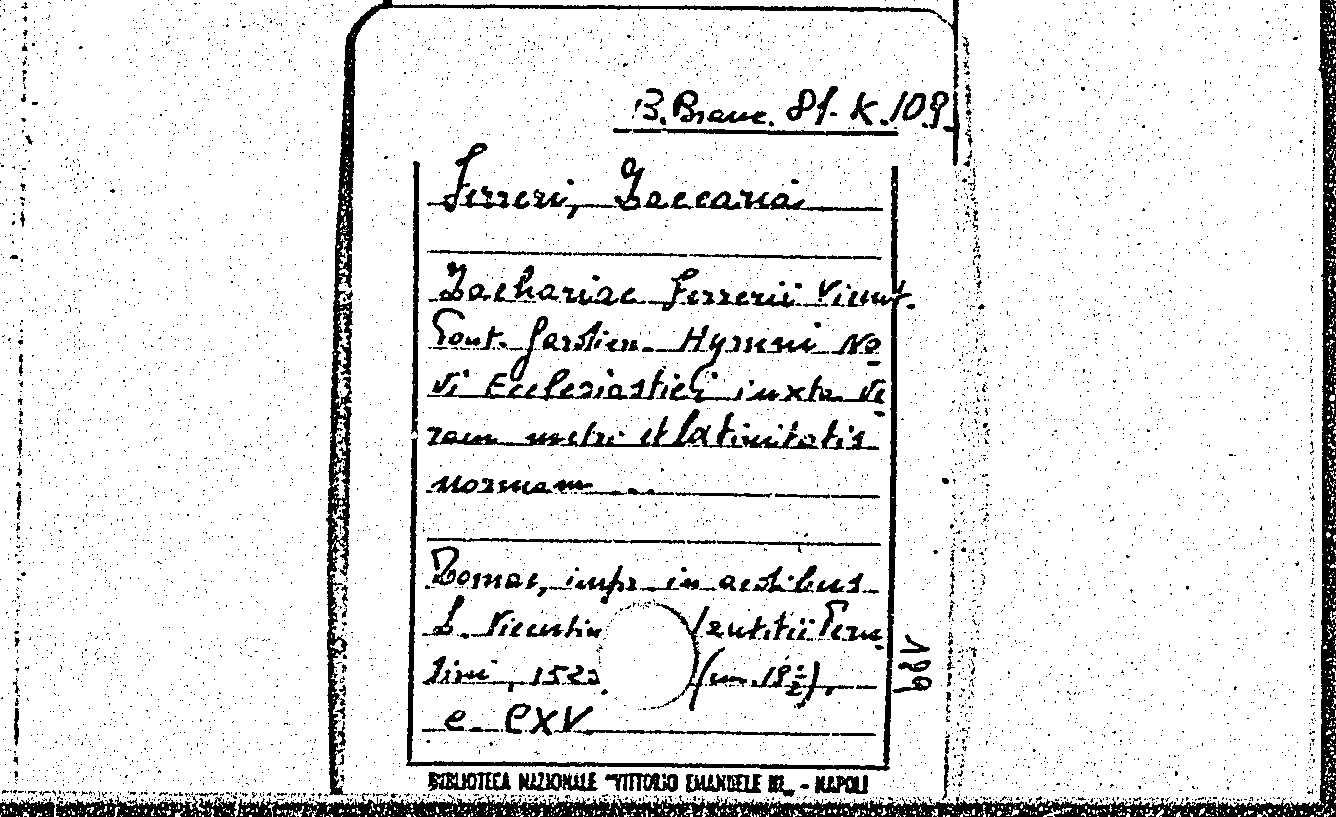 B. Branc. 81. K. 109.
Ferreri, Zaccaria
Zachariae Ferrerii Vicent.
Pont. Gardien. Hymni No
vi Ecclesiastici iuxta ve
ram metri et latinitatis
normam ...
Romae, impr. in aedibus
L. Vicentin
/autitii Peru
sini, 152
(cm. 19 ½),
c. CXV
BIBLIOTECA NAZIONALE "VITTORIO EMANUELE III„ - NAPOLI